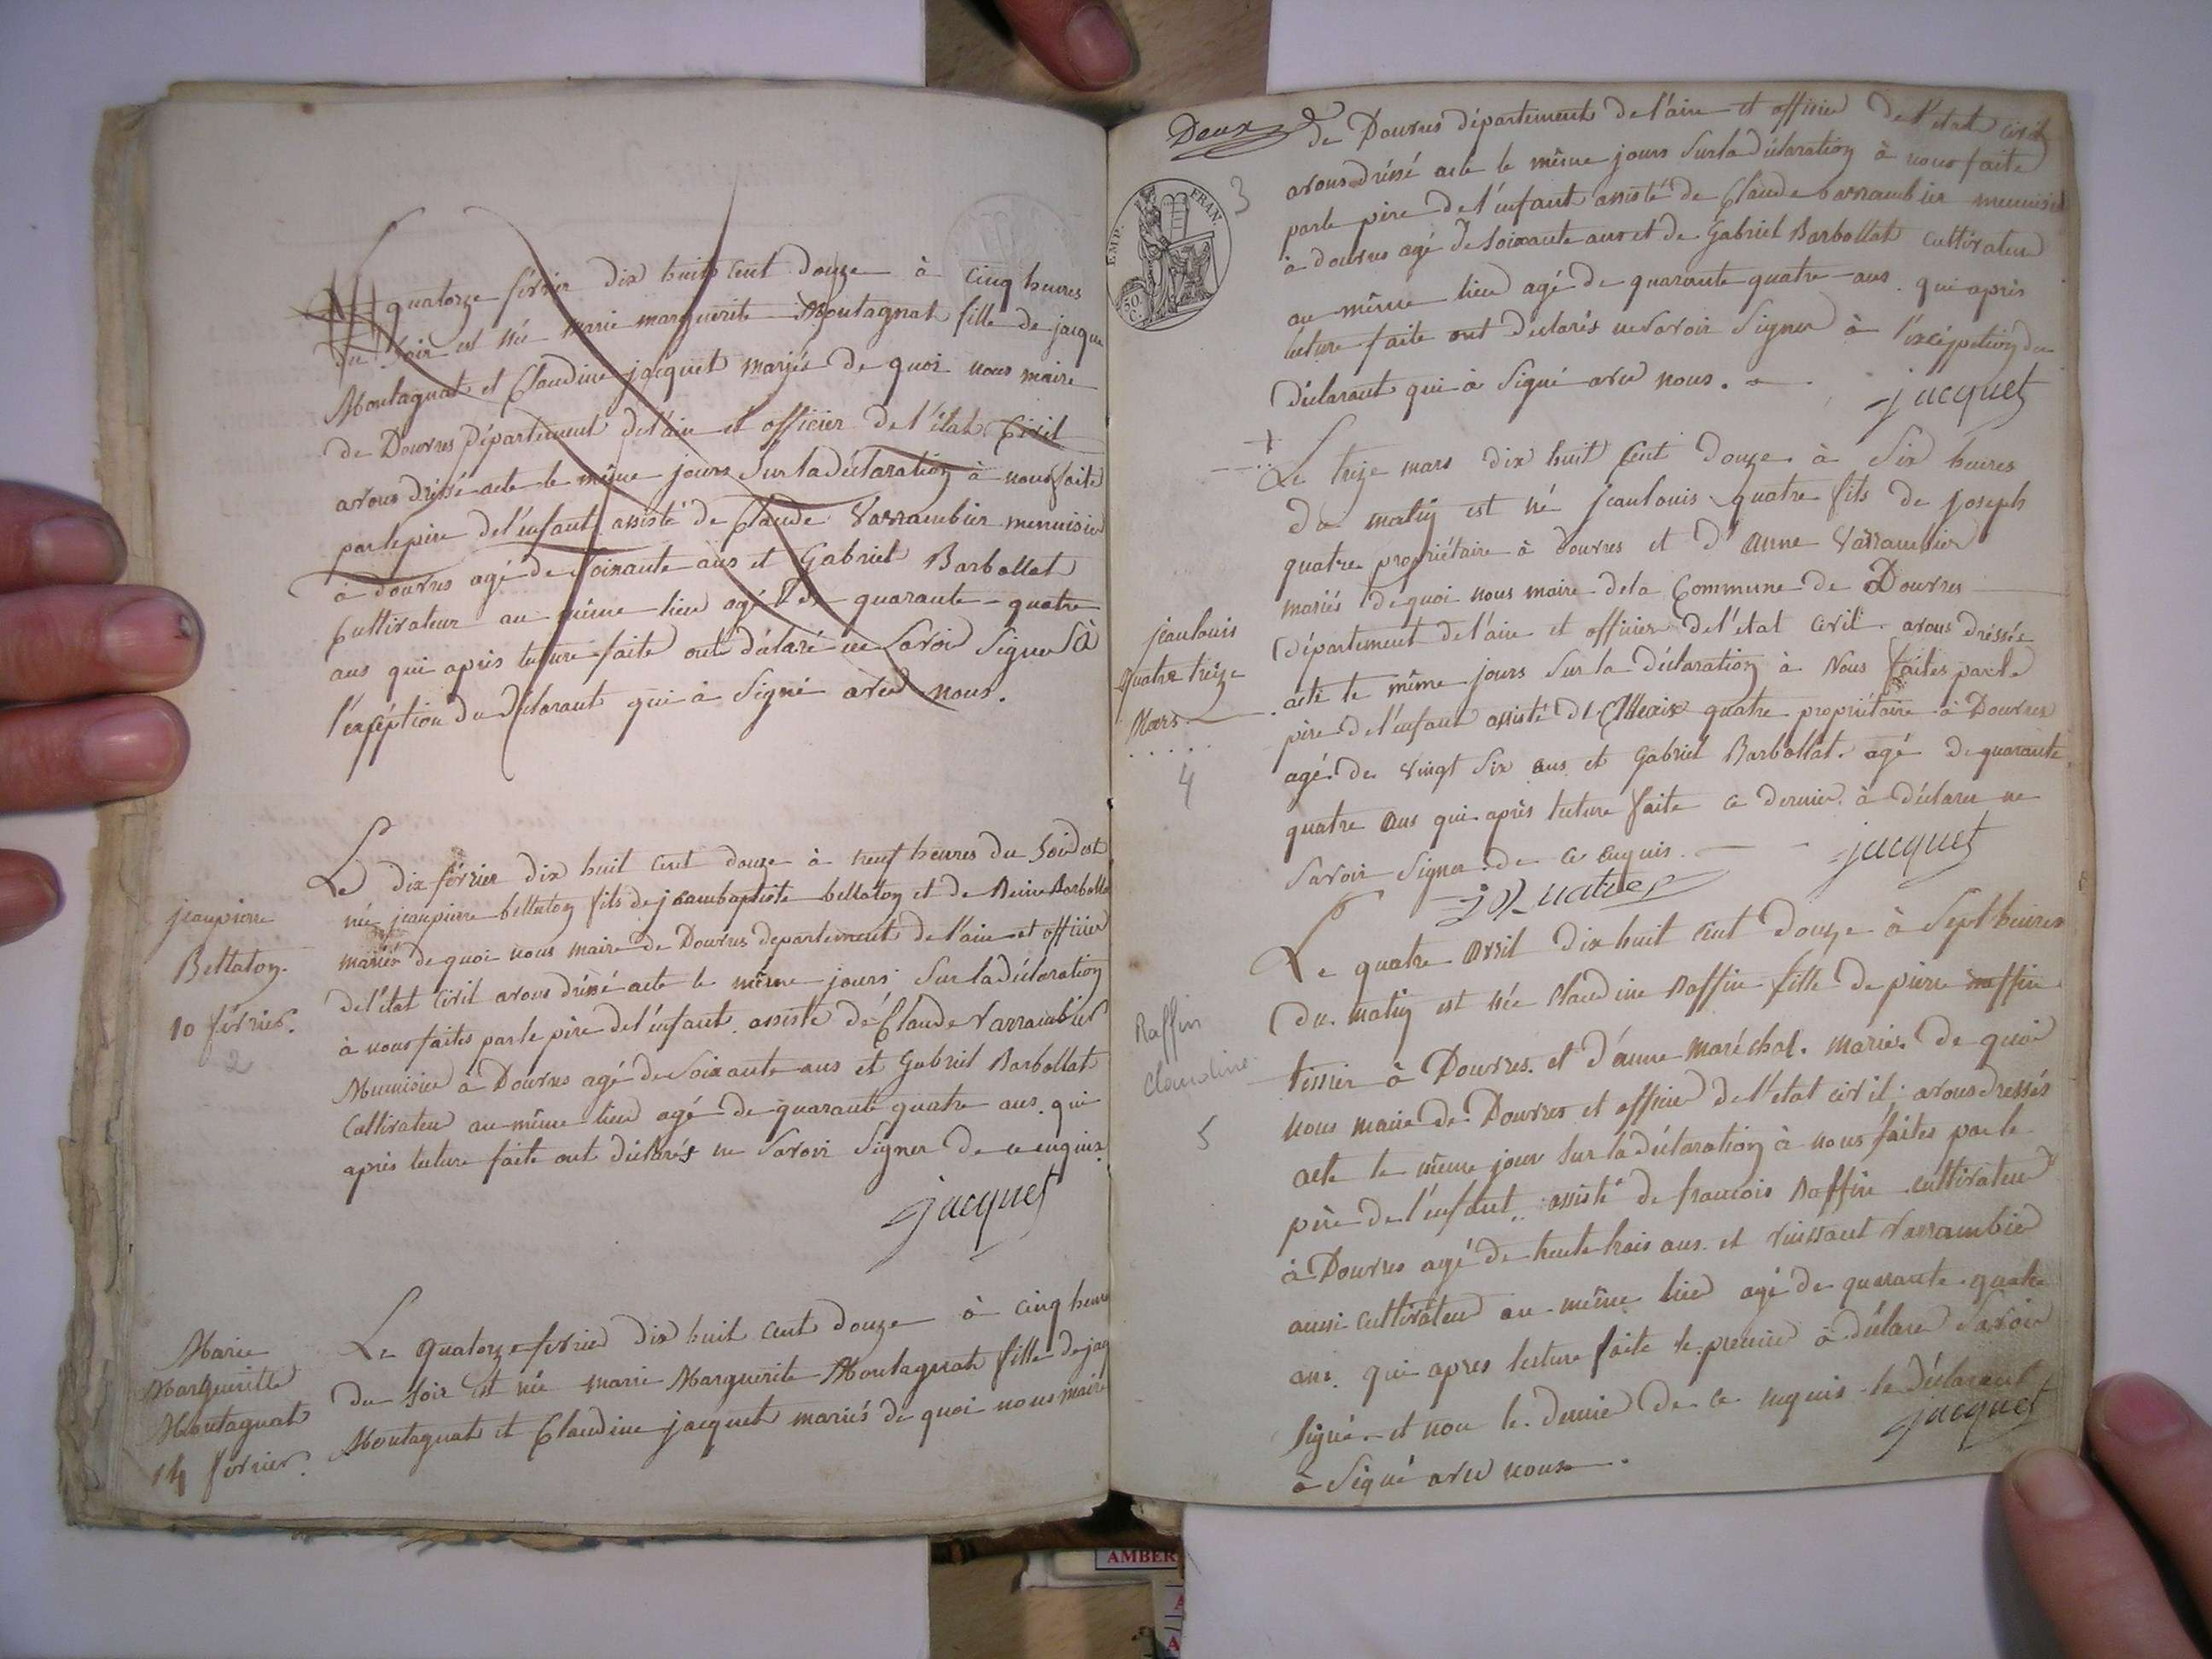 Le quatorze février dix huit cent douze à cinq heures
du soir est née marie marguerite Montagnat fille de jacque
Montagnat et Claudine jacquet mariés de quoi nous maire
de Douvres département de l'ain et officier de l'état Civil
avons dréssé acte le même jours Sur la déclaration à nous faite
par le pire de l'enfant assisté de Claude Varrambier menuisier
à douvres agé de soixante ans et Gabriel Barbollat
Cultivateur au même lieu agé de quarante-quatre
ans qui après lecture faite ont déclaré ne Savoir Signer à
l'exception du déclarant qui à Signé avec nous.
jeanpierre
Bellaton.
10 février.
2
Le dix février dix huit cent douze à neuf heures du Soir est
née jeanpierre bellaton fils de jeambaptiste bellaton et de Reine Barbolla
mariés de quoi nous maire de Douvres departement de l'ain et officier
de l'état Civil avons dréssé acte le même jours Sur la déclaration
à nous faites par le pire de l'enfant assisté de Claude Varrambier
Menuisier à Douvres agé de Soixante ans et Gabriel Barbollat
Cultivateur au même lieu agé de quarante quatre ans qui
après lecture faite ont déclarés ne Savoir Signer de ce enquis.
jacquet
Marie
Marguerille
Montagnat
14 février.
Le quatorze fevrier dix huit cent douze à cinq heures
du soir est née marie Marguerite Montagnat fille de jac
Montagnat et Claudine jacquet mariés de quoi nous maire
Deux
3
EMP. FRAN.
50 C.
de Douvres département de l'ain et officier de l'etat civil
avons dréssé acte le même jours Sur la déclaration à nous faite
par le père de l'enfant assisté de Claude varrambier menuisier
à douvres agé de soixante ans et de Gabriel Barbollat cultivateur
au même lieu agé de quarante quatre ans qui après
lecture faite ont declarés ne Savoir Signer à l'excéption du
déclarant qui à Signé avec nous.
jacquet
jeanlouis
quatre treize
Mars
4
Le treize mars dix huit Cent douze à Six heures
du matin est né jeanlouis quatre fils de joseph
quatre propriétaire à douvres et d'anne Varrambier
mariés de quoi nous maire de la Commune de Douvres
département de l'ain et officier de l'etat Civil avons dréssés
acte le même jours Sur la déclaration à Nous faites par le
père de l'enfant assisté de quatre propriétaire à Douvres
agé de vingt Six ans et Gabriel Barbollat agé de quarante
quatre ans qui après lecture faite ce dernier à déclaré ne
Savoir Signer de ce enquis.
jacquet
Raffin
Claudine
5
Le quatre avril dix huit Cent douze à Sept heures
du matin est née Claudine Raffin fille de pierre raffin
tissier à Douvres et d'anne maréchal mariés de quoi
nous maire de Douvres et officier de l'etat civil avons dressés
acte le même jour Sur la déclaration à nous faites par le
père de l'enfant assisté de francois Raffin cultivateur
à Douvres agé de trente trois ans et vinssant Varrambier
aussi Cultivateur au même lieu agé de quarante quatre
ans qui apres lecture faite le premier à déclaré Savoir
Signé et non le dernier de ce enquis le déclarant
à Signé avec nous.
jacquet
AMBER